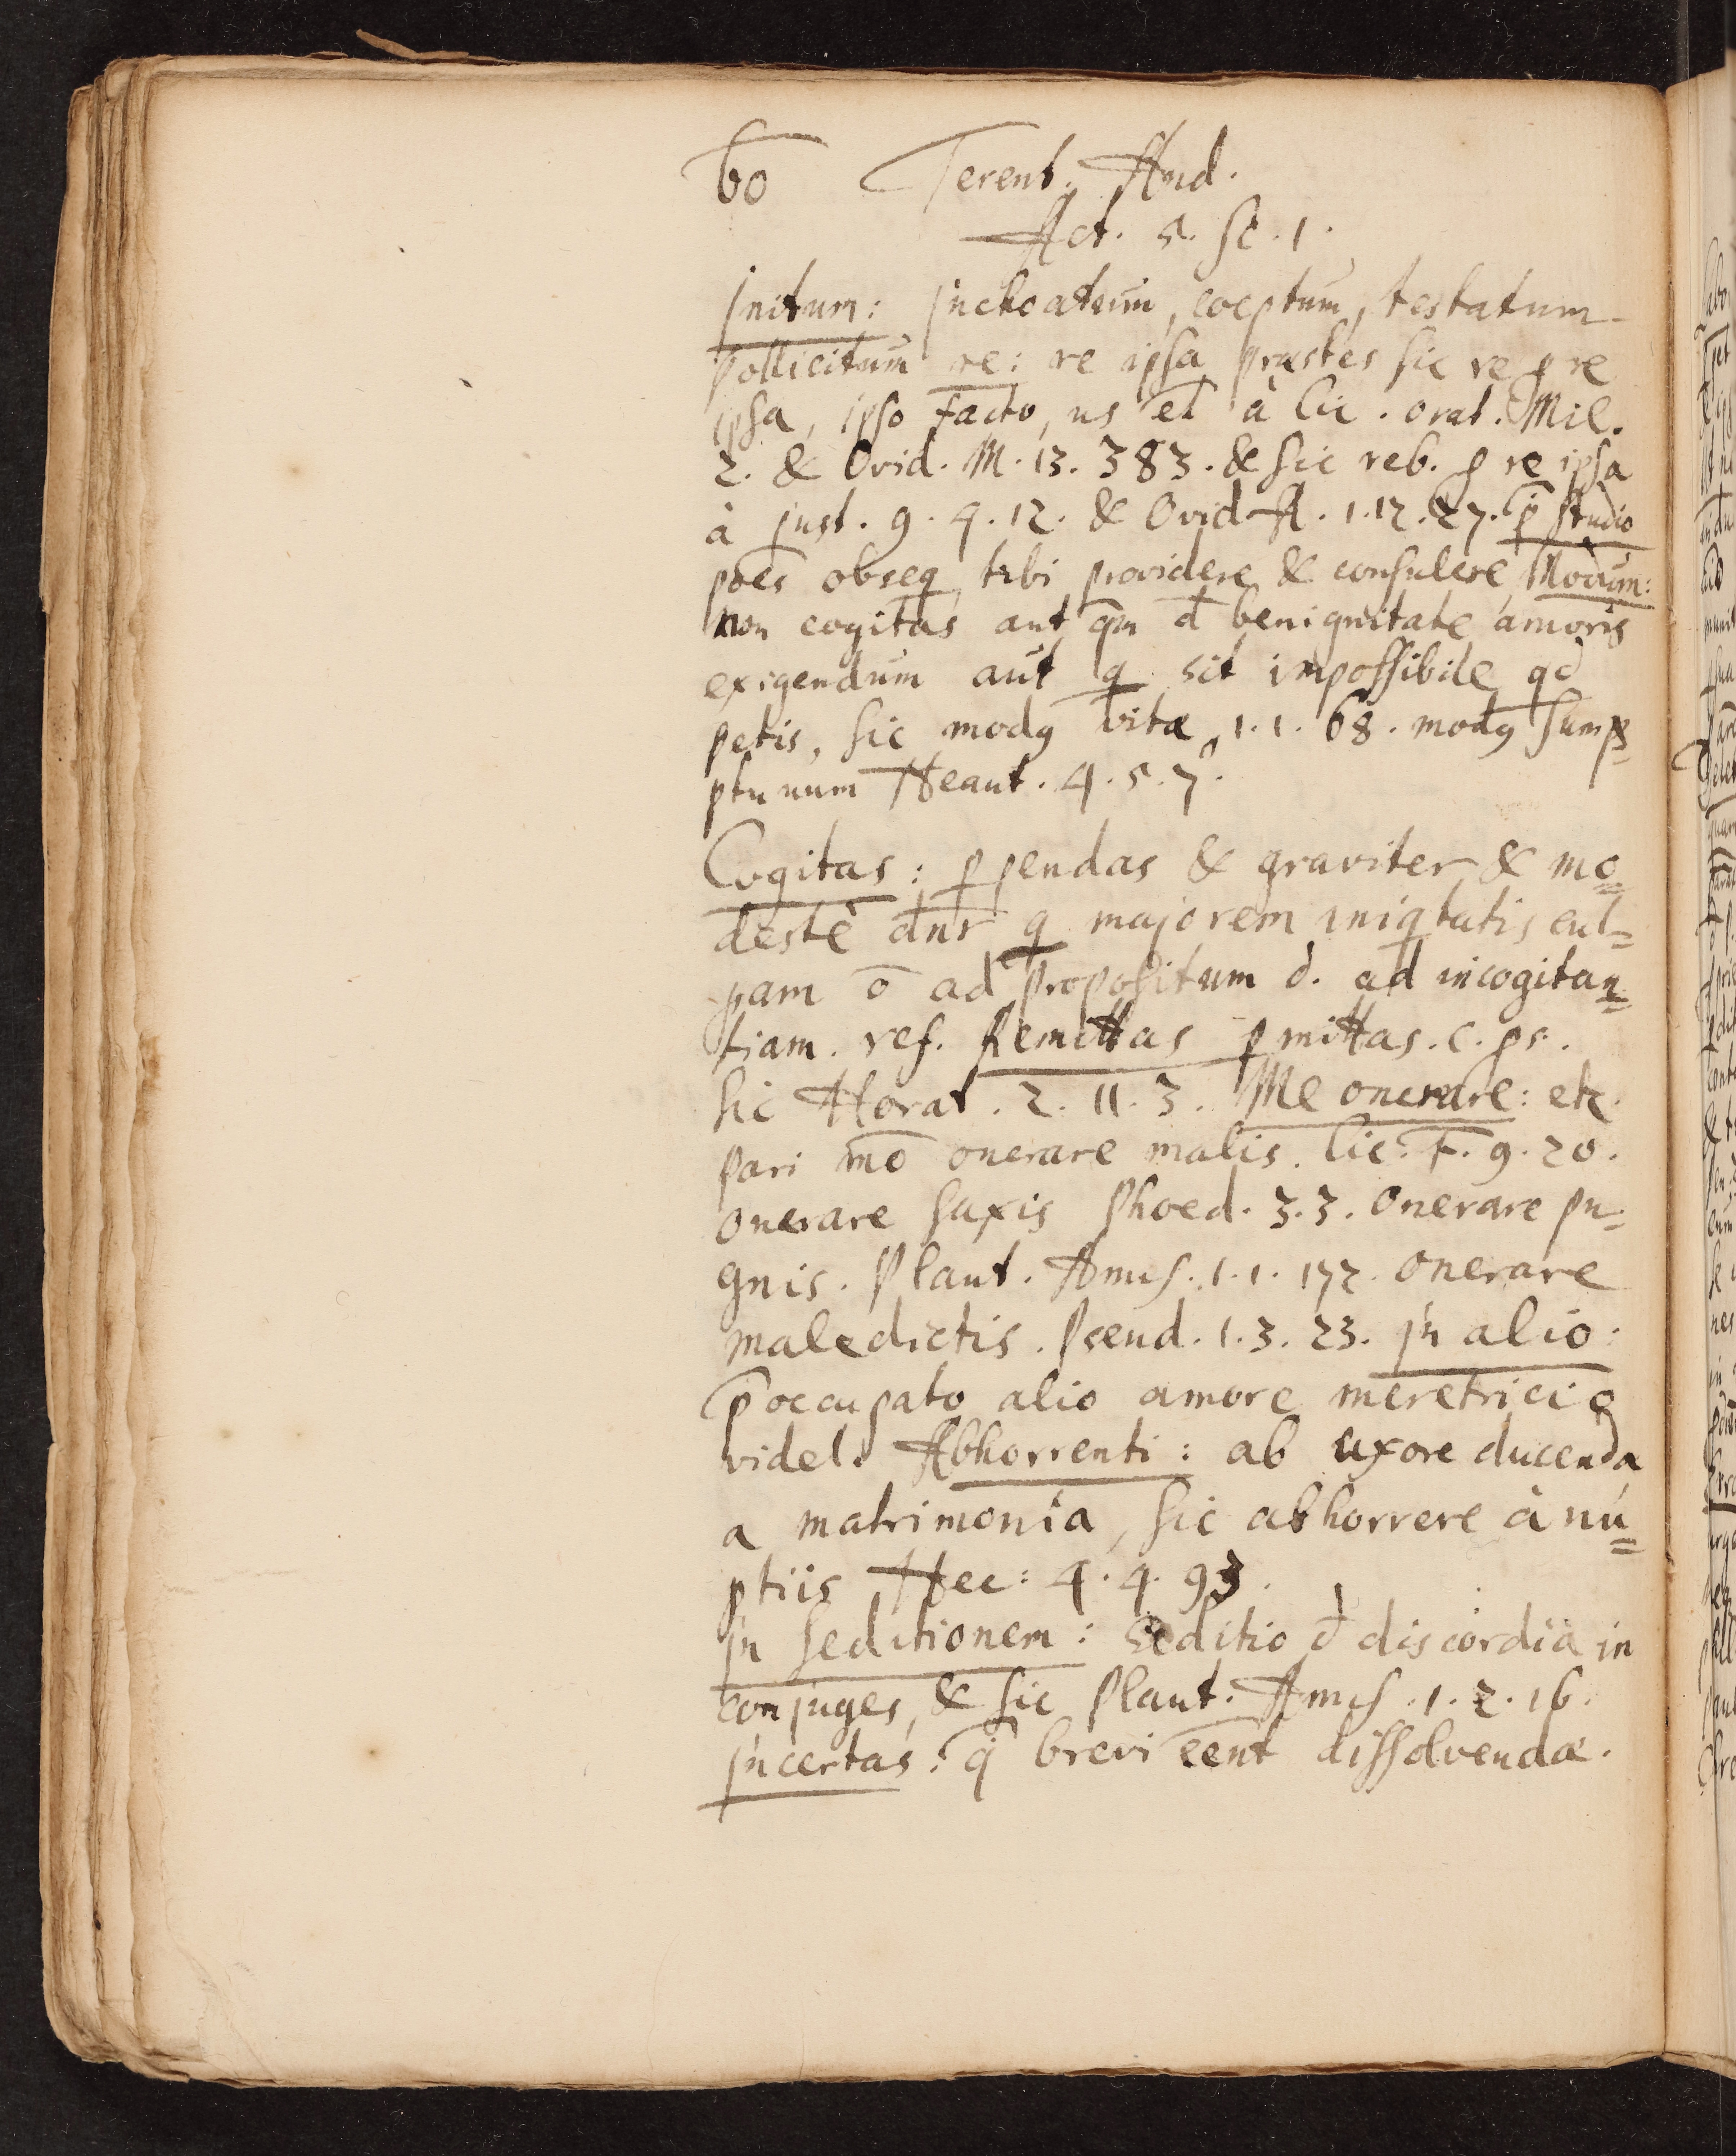 60 Terent. And.
Act. 5. Sc. 1.
Initum: Inchoatum, coeptum, testatum
Pollicitum re: re ipsa præstes sic re p re
ipsa, ipso facto, us et à Cic. orat. Mil.
2. & Ovid. M. 13. 383. & sic reb. p re ipsa
à Just. 9. 4. 12. & Ovid A. 1. 12. 27. p̄ studio
poēs obseq tibi providere & consulere Modum:
non cogitas aut qm đ benignitate amoris
exigendum aut q sit impossibile qđ
petis, sic mody vitæ 1. 1. 68. mody sum=
ptuum Heaut. 4. 5. 7.
Cogitas: p pendas & graviter & mo=
destè dnr q majorem iniqtatis cul=
pam ō ad propositum đ. ad incogitan=
tiam. ref. Remittas pmittas. c. ps.
sic Horat. 2. 11. 3. Me onerare: etc.
pari mō onerare malis. Cic. F. 9. 20.
onerare saxis Phoed. 3. 3. Onerare pu=
gnis. Plaut. Amf. 1. 1. 172. Onerare
maledictis. Pseud. 1. 3. 23. In alio:
p̄occupato alio amore meretricio
videl. Abhorrenti: ab uxore ducenda
a matrimonia, sic abhorrere à nu=
ptiis Hec: 4. 4. 93.
In seditionem: seditio đ discordia in
conjuges, & sic Plaut. Amf. 1. 2. 16.
Incertas: q̄ brevi eēnt dissolvendæ.